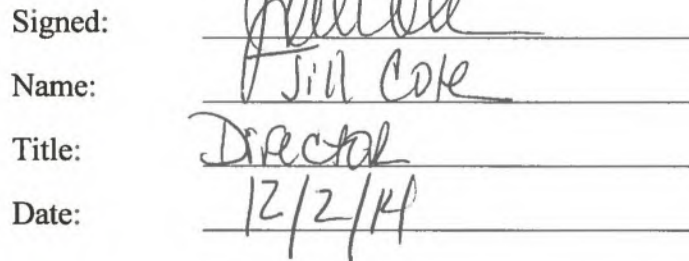 Signed:
Name: Jill Cole
Title: Director
Date: 12/2/14